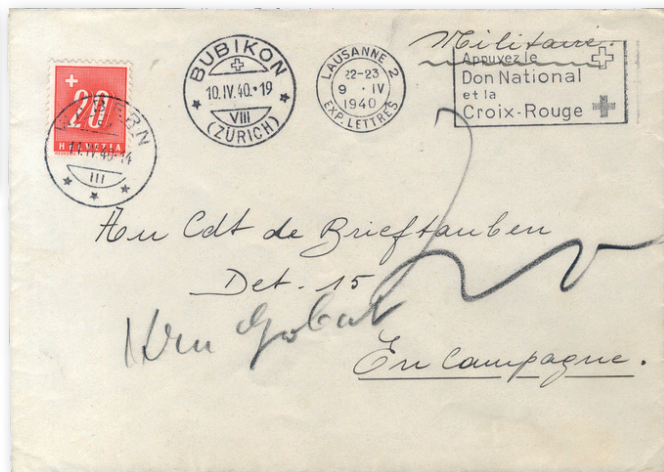 Militaire
+
20
HELVETIA
BERN
11.IV.40-14
III
BUBIKON
10.IV.40.-19
VIII
(ZÜRICH)
LAUSANNE 2
22-23
9 · IV
1940
EXP. LETTRES
Appuyez le
Don National
et la
Croix-Rouge
Au Cdt de Brieftauben
Det. 15
En Campagne.